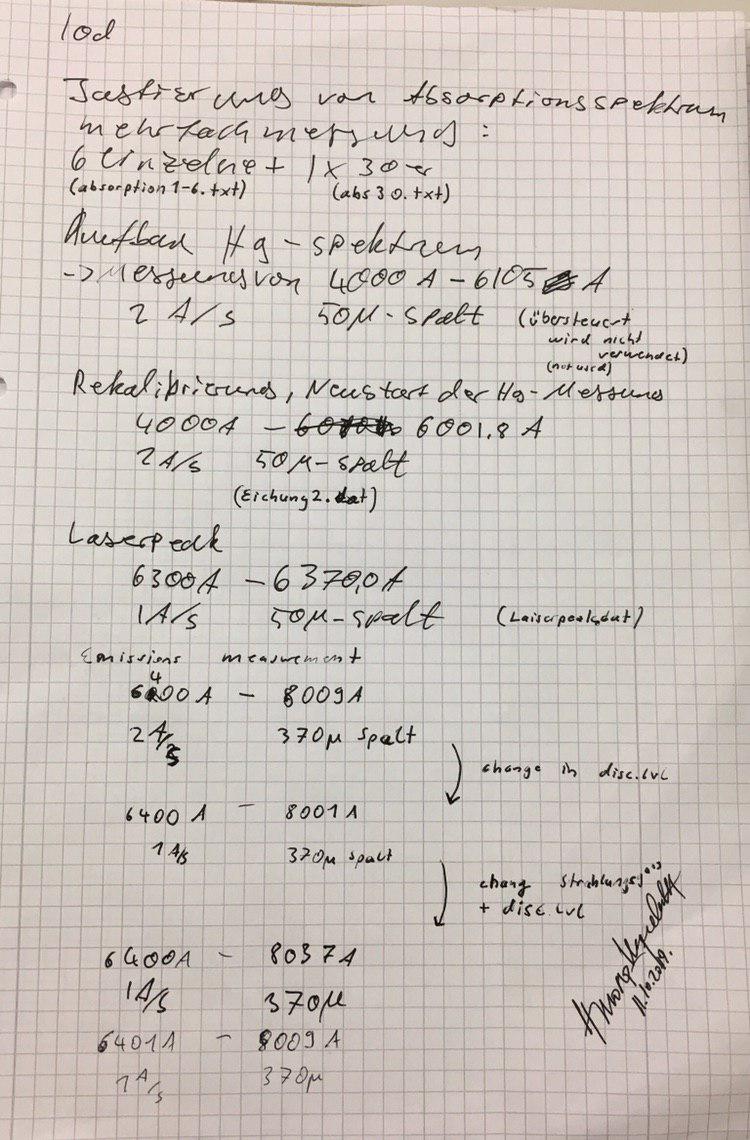 Iod
Justierung von Absorptionsspektrum
mehrfachmessung:
6 Einzelne + 1x 30er
(absorption 1-6.txt) (abs 30.txt)
Aufbau Hg-spektrum
-> Messung von 4000 A - 6105 A
2 A/s 50µ-spalt (übersteuert
wird nicht
verwendet)
(not used)
Rekalibrierung, Neustart der Hg-Messung
4000A - 6001.8 A
2A/s 50µ-spalt
(Eichung2.dat)
Laserpeak
6300A - 6370,0A
1A/s 50µ-spalt (Laiserpeak.dat)
Emissions measurement
6400 A - 8009A
2A/s 370µ spalt
change in disc.lvl
6400 A - 8001A
1A/s 370µ spalt
chang
+ disc.lvl
6400A - 8037A
1A/s 370µ
11.10.2019.
6401A - 8009A
1A/s 370µ